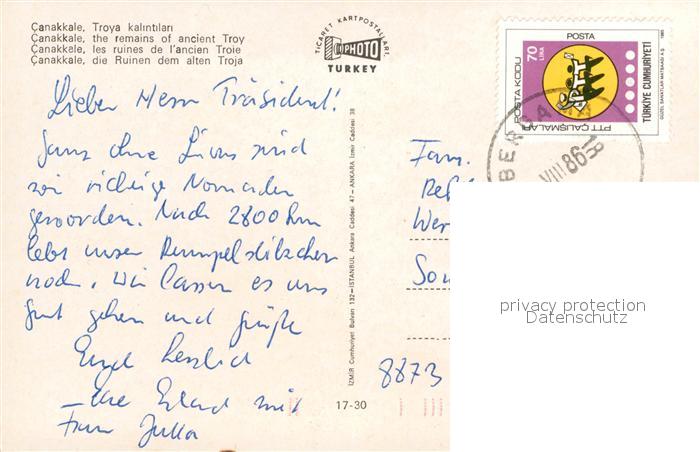 Çanakkale, Troya kalıntıları
Çanakkale, the remains of ancient Troy
Çanakkale, les ruines de l'ancien Troie
Çanakkale, die Ruinen dem alten Troja
TİCARET KARTPOSTALLARI
PHOTO
TURKEY
POSTA
POSTA KODU
70 LİRA
PTT
PTT ÇALIŞMALARI
TÜRKİYE CUMHURİYETİ
GÜZEL SANATLAR MATBAASI A.Ş.
1985
BERGAMA
18 VIII 86
Lieber Herr Präsident!
Ganz ohne Luxus sind
wir richtige Nomaden
geworden. Nach 2800 km
lebt unser Rumpelstilzchen
noch. Wir lassen es uns
gut gehen und grüße
Euch herzlich
Erhard mit
Frau Jutta
Fam.
Wer
8873
İZMİR Cumhuriyet Bulvarı 132 — İSTANBUL Ankara Caddesi 47 — ANKARA İzmir Caddesi 38
17-30
privacy protection
Datenschutz